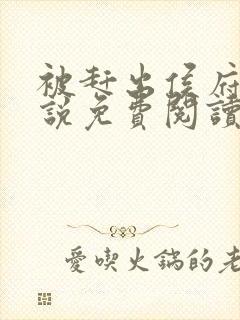 被赶出侯府
說免費閱讀
愛喫火鍋的老